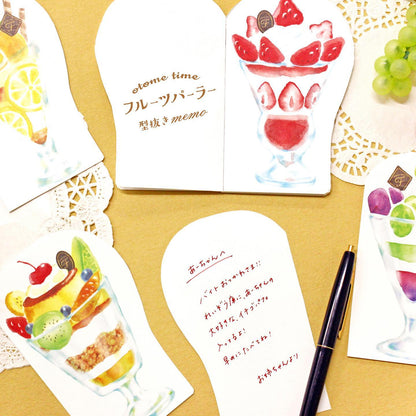 otome time
フルーツパーラー
型抜きmemo
あーちゃんへ
バイトおつかれさま!!
れいぞう庫に、あーちゃんの
大好きな、イチゴパフェ
入ってるよ!
早めにたべてね!
お姉ちゃんより